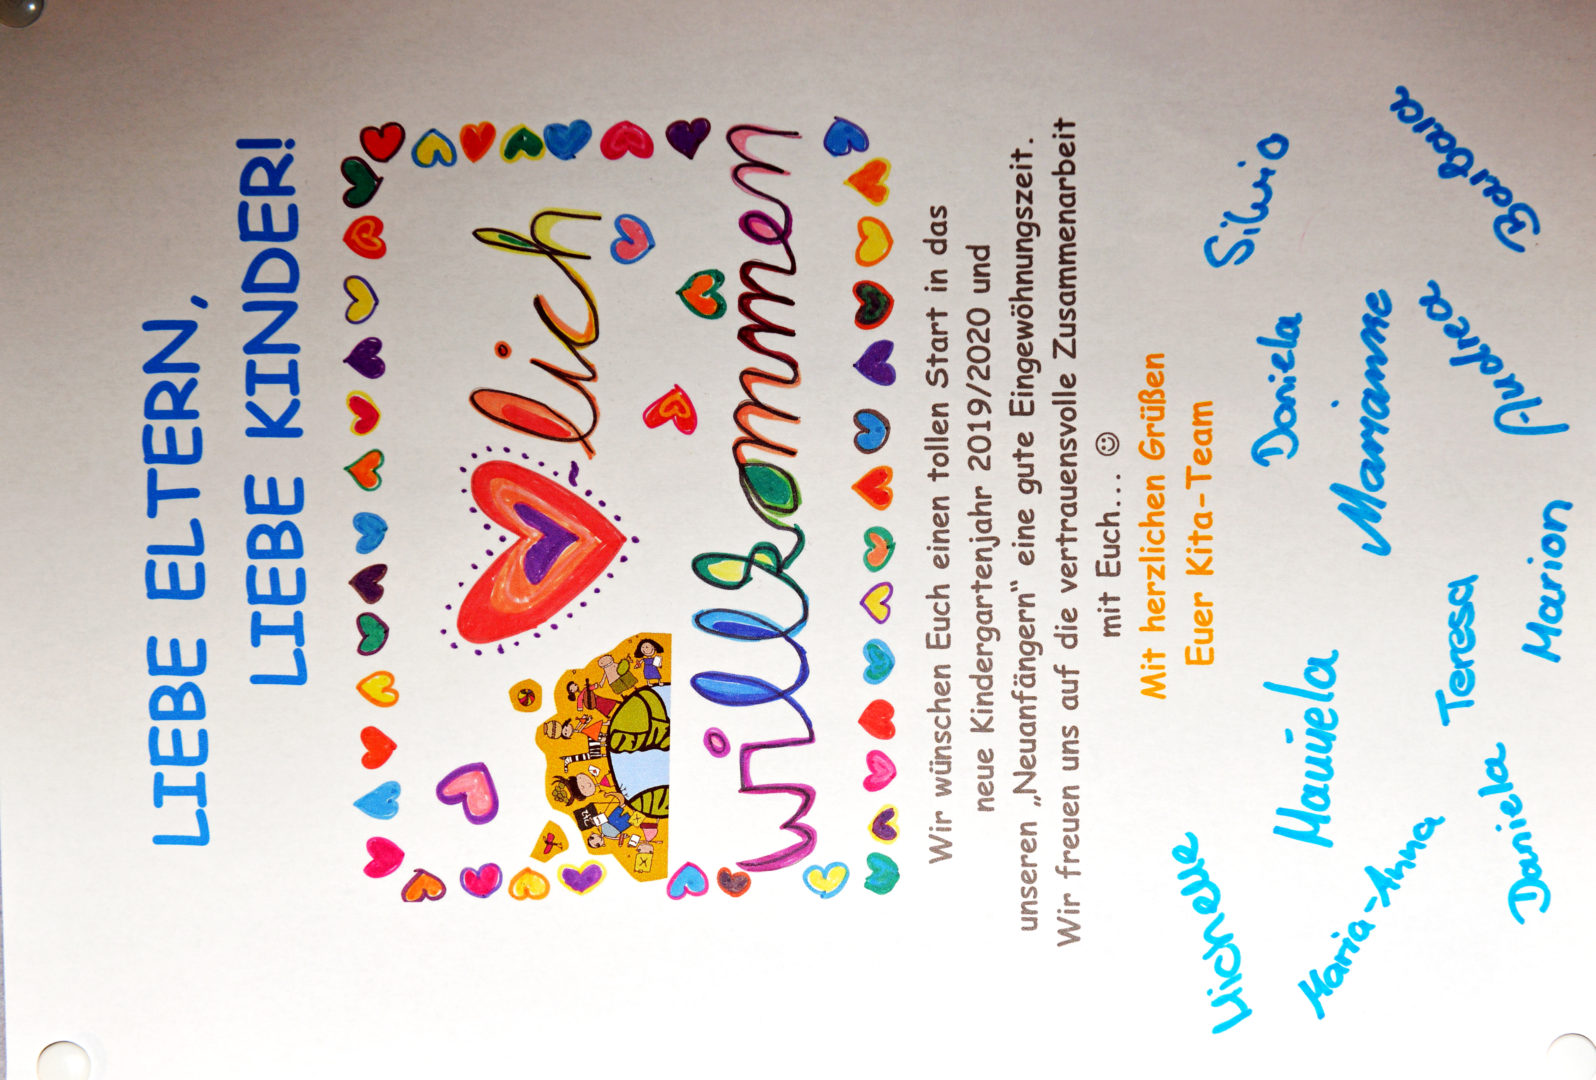 LIEBE ELTERN,
LIEBE KINDER!
lich
willkommen
Wir wünschen Euch einen tollen Start in das
neue Kindergartenjahr 2019/2020 und
unseren „Neuanfängern“ eine gute Eingewöhnungszeit.
Wir freuen uns auf die vertrauensvolle Zusammenarbeit
mit Euch... ☺
Mit herzlichen Grüßen
Euer Kita-Team
Michelle
Manuela
Daniela
Silvio
Maria-Anna
Marianne
Barbara
Teresa
Andrea
Daniela
Marion